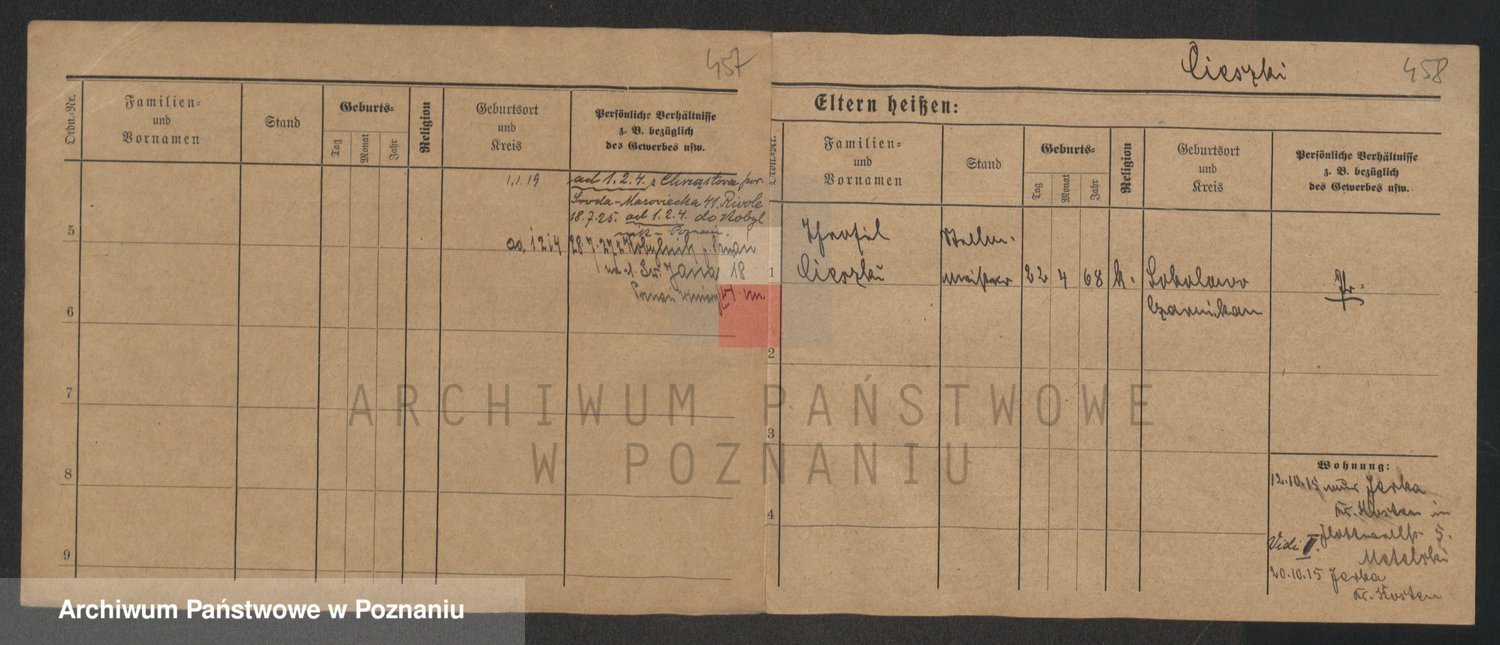 457
Ordn.-Nr.
Familien-
und
Vornamen
Stand
Geburts-
Tag
Monat
Jahr
Religion
Geburtsort
und
Kreis
Persönliche Verhältnisse
z. B. bezüglich
des Gewerbes usw.
1.1.19
ad 1.2.4. z
Środa - Mazowiecka 41.
18.7.25. ad 1.2.4. do Kobyl
nik - Poznań.
28.7.27 z Kobylnik
Jana 18
5
6
7
8
9
Cieszki
458
Eltern heißen:
Ordn.-Nr.
Familien-
und
Vornamen
Stand
Geburts-
Tag
Monat
Jahr
Religion
Geburtsort
und
Kreis
Persönliche Verhältnisse
z. B. bezüglich
des Gewerbes usw.
1
Cieszki
22 4 68 k.
Czarnikau
Pr.
2
3
4
Wohnung:
12.10.15 Jerka
Kr. Kosten in
5.
Vidi II.
Metelski
20.10.15 Jerka
Kr. Kosten
ARCHIWUM PAŃSTWOWE
W POZNANIU
Archiwum Państwowe w Poznaniu